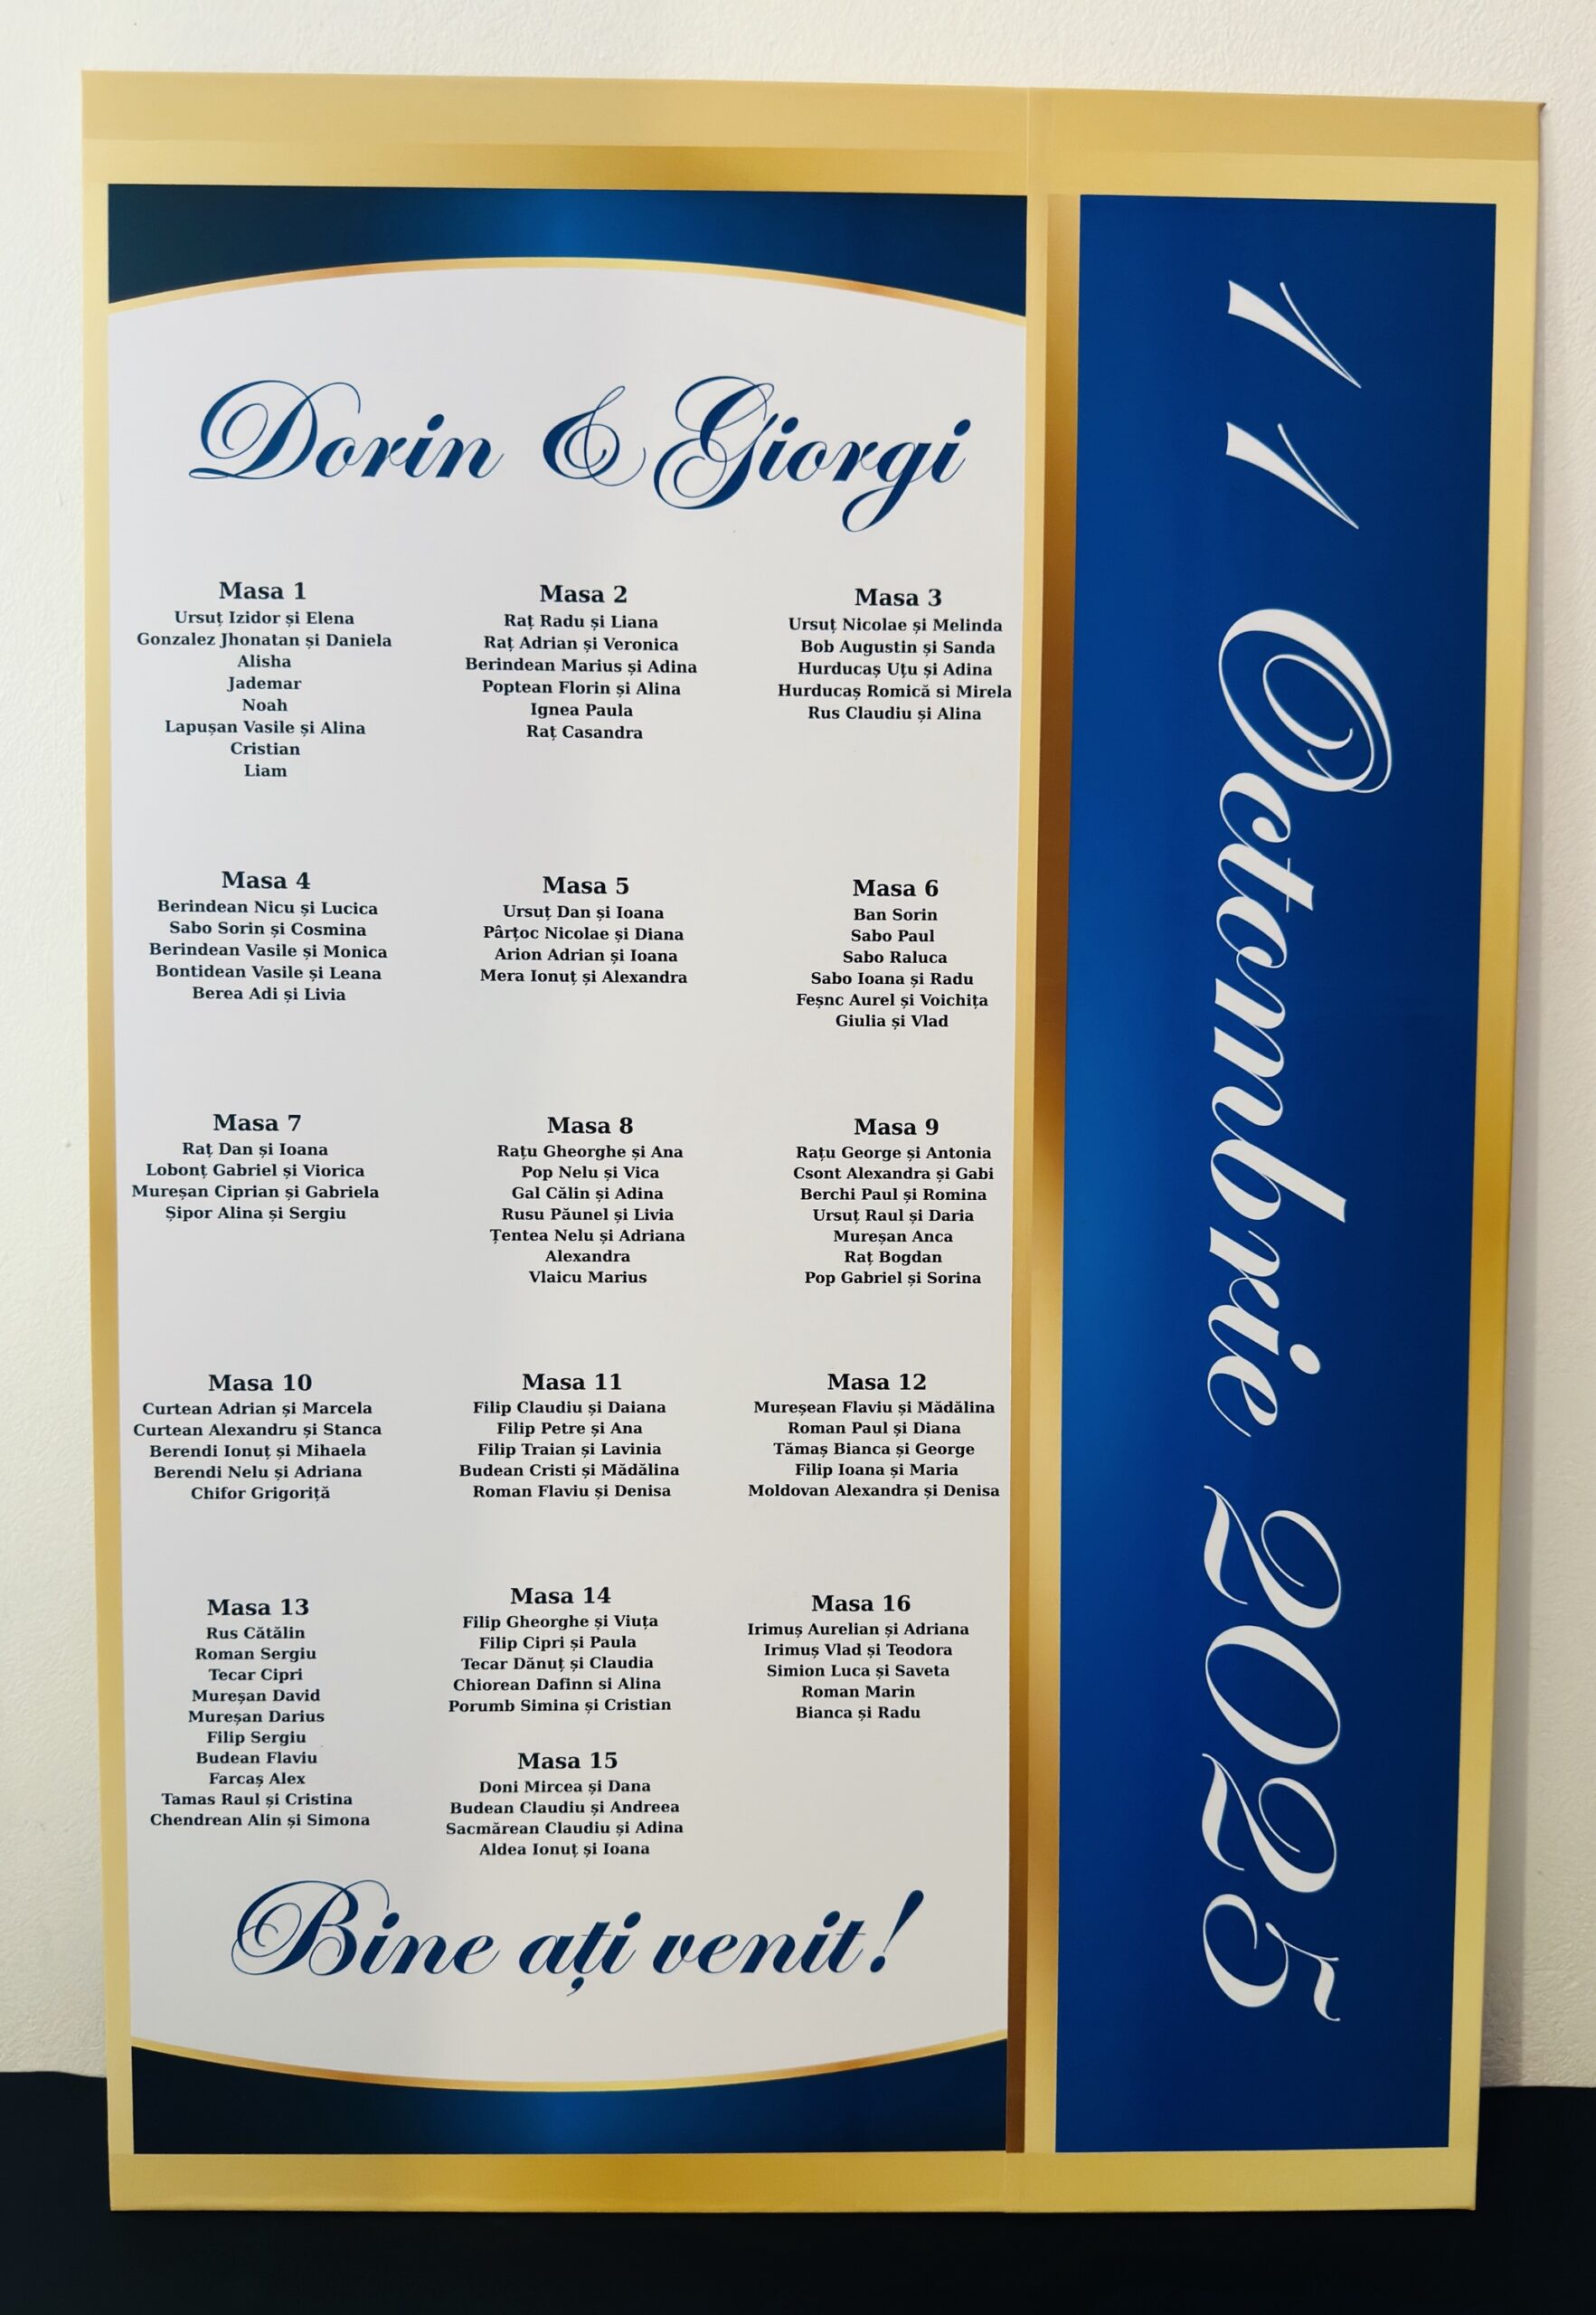 Dorin & Giorgi
Masa 1
Ursuț Izidor și Elena
Gonzalez Jhonatan și Daniela
Alisha
Jademar
Noah
Lapușan Vasile și Alina
Cristian
Liam
Masa 2
Raț Radu și Liana
Raț Adrian și Veronica
Berindean Marius și Adina
Poptean Florin și Alina
Ignea Paula
Raț Casandra
Masa 3
Ursuț Nicolae și Melinda
Bob Augustin și Sanda
Hurducaș Uțu și Adina
Hurducaș Romică si Mirela
Rus Claudiu și Alina
Masa 4
Berindean Nicu și Lucica
Sabo Sorin și Cosmina
Berindean Vasile și Monica
Bontidean Vasile și Leana
Berea Adi și Livia
Masa 5
Ursuț Dan și Ioana
Pârțoc Nicolae și Diana
Arion Adrian și Ioana
Mera Ionuț și Alexandra
Masa 6
Ban Sorin
Sabo Paul
Sabo Raluca
Sabo Ioana și Radu
Feșnc Aurel și Voichița
Giulia și Vlad
Masa 7
Raț Dan și Ioana
Lobonț Gabriel și Viorica
Mureșan Ciprian și Gabriela
Șipor Alina și Sergiu
Masa 8
Rațu Gheorghe și Ana
Pop Nelu și Vica
Gal Călin și Adina
Rusu Păunel și Livia
Țentea Nelu și Adriana
Alexandra
Vlaicu Marius
Masa 9
Rațu George și Antonia
Csont Alexandra și Gabi
Berchi Paul și Romina
Ursuț Raul și Daria
Mureșan Anca
Raț Bogdan
Pop Gabriel și Sorina
Masa 10
Curtean Adrian și Marcela
Curtean Alexandru și Stanca
Berendi Ionuț și Mihaela
Berendi Nelu și Adriana
Chifor Grigoriță
Masa 11
Filip Claudiu și Daiana
Filip Petre și Ana
Filip Traian și Lavinia
Budean Cristi și Mădălina
Roman Flaviu și Denisa
Masa 12
Mureșean Flaviu și Mădălina
Roman Paul și Diana
Tămaș Bianca și George
Filip Ioana și Maria
Moldovan Alexandra și Denisa
Masa 13
Rus Cătălin
Roman Sergiu
Tecar Cipri
Mureșan David
Mureșan Darius
Filip Sergiu
Budean Flaviu
Farcaș Alex
Tamas Raul și Cristina
Chendrean Alin și Simona
Masa 14
Filip Gheorghe și Viuța
Filip Cipri și Paula
Tecar Dănuț și Claudia
Chiorean Dafinn si Alina
Porumb Simina și Cristian
Masa 15
Doni Mircea și Dana
Budean Claudiu și Andreea
Sacmărean Claudiu și Adina
Aldea Ionuț și Ioana
Masa 16
Irimuș Aurelian și Adriana
Irimuș Vlad și Teodora
Simion Luca și Saveta
Roman Marin
Bianca și Radu
Bine ați venit!
11 Octombrie 2025